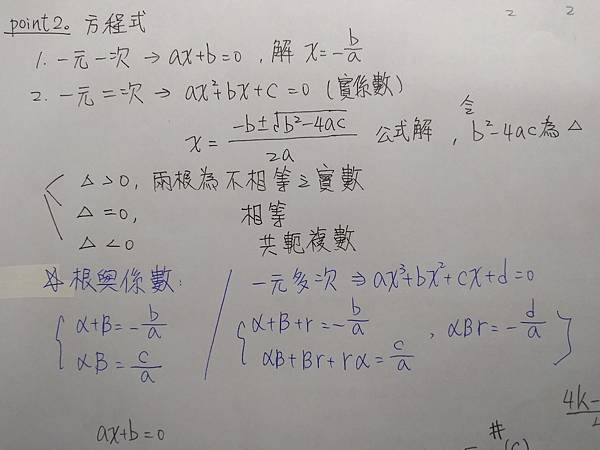 point 2。方程式
1. 一元一次 → ax+b=0 , 解 x=-b/a
2. 一元二次 → ax²+bx+c=0 (實係數)
x = (-b±√(b²-4ac))/2a 公式解 , 令 b²-4ac為△
△>0, 兩根為不相等之實數
△=0, 相等
△<0 共軛複數
根與係數: / 一元多次 ⇒ ax³+bx²+cx+d=0
α+B=-b/a α+B+r=-b/a , αBr=-d/a
αB=c/a αB+Br+rα=c/a
ax+b=0
4k-
#
(C)